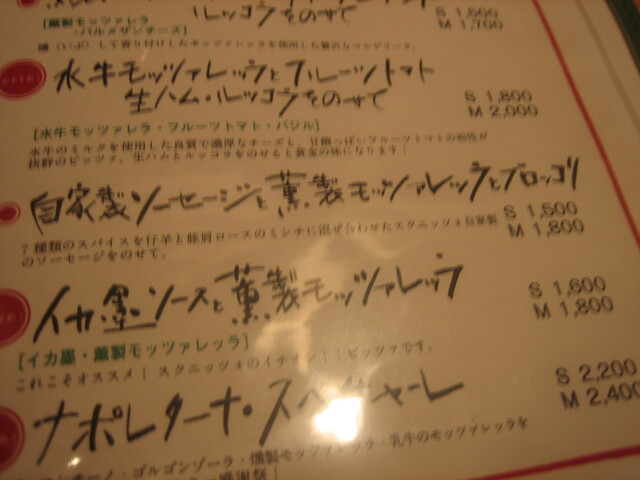 ルッコラをのせて
S 1,500
M 1,700
[薫製モッツァレラ
・パルメザンチーズ]
水牛モッツァレッラとフルーツトマト
生ハム・ルッコラをのせて
S 1,800
M 2,000
[水牛モッツァレラ・フルーツトマト・バジル]
水牛のミルクを使用した良質で濃厚なチーズと、甘酸っぱいフルーツトマトの相性が
抜群のピッツァ。生ハムとルッコラをのせると黄金の味になります！
自家製ソーセージと薫製モッツァレッラとブロッコリ
S 1,500
M 1,800
7種類のスパイスを仔羊と豚肩ロースのミンチに混ぜ合わせたスクニッツォ自家製
のソーセージをのせて。
イカ墨ソースと薫製モッツァレッラ
S 1,600
M 1,800
[イカ墨・薫製モッツァレッラ]
これこそオススメ！スクニッツォのイチオシ！！ピッツァです。
ナポレターナ・スペシャーレ
S 2,200
M 2,400
ゴルゴンゾーラ・燻製モッツァレッラ・乳牛のモッツァレッラを